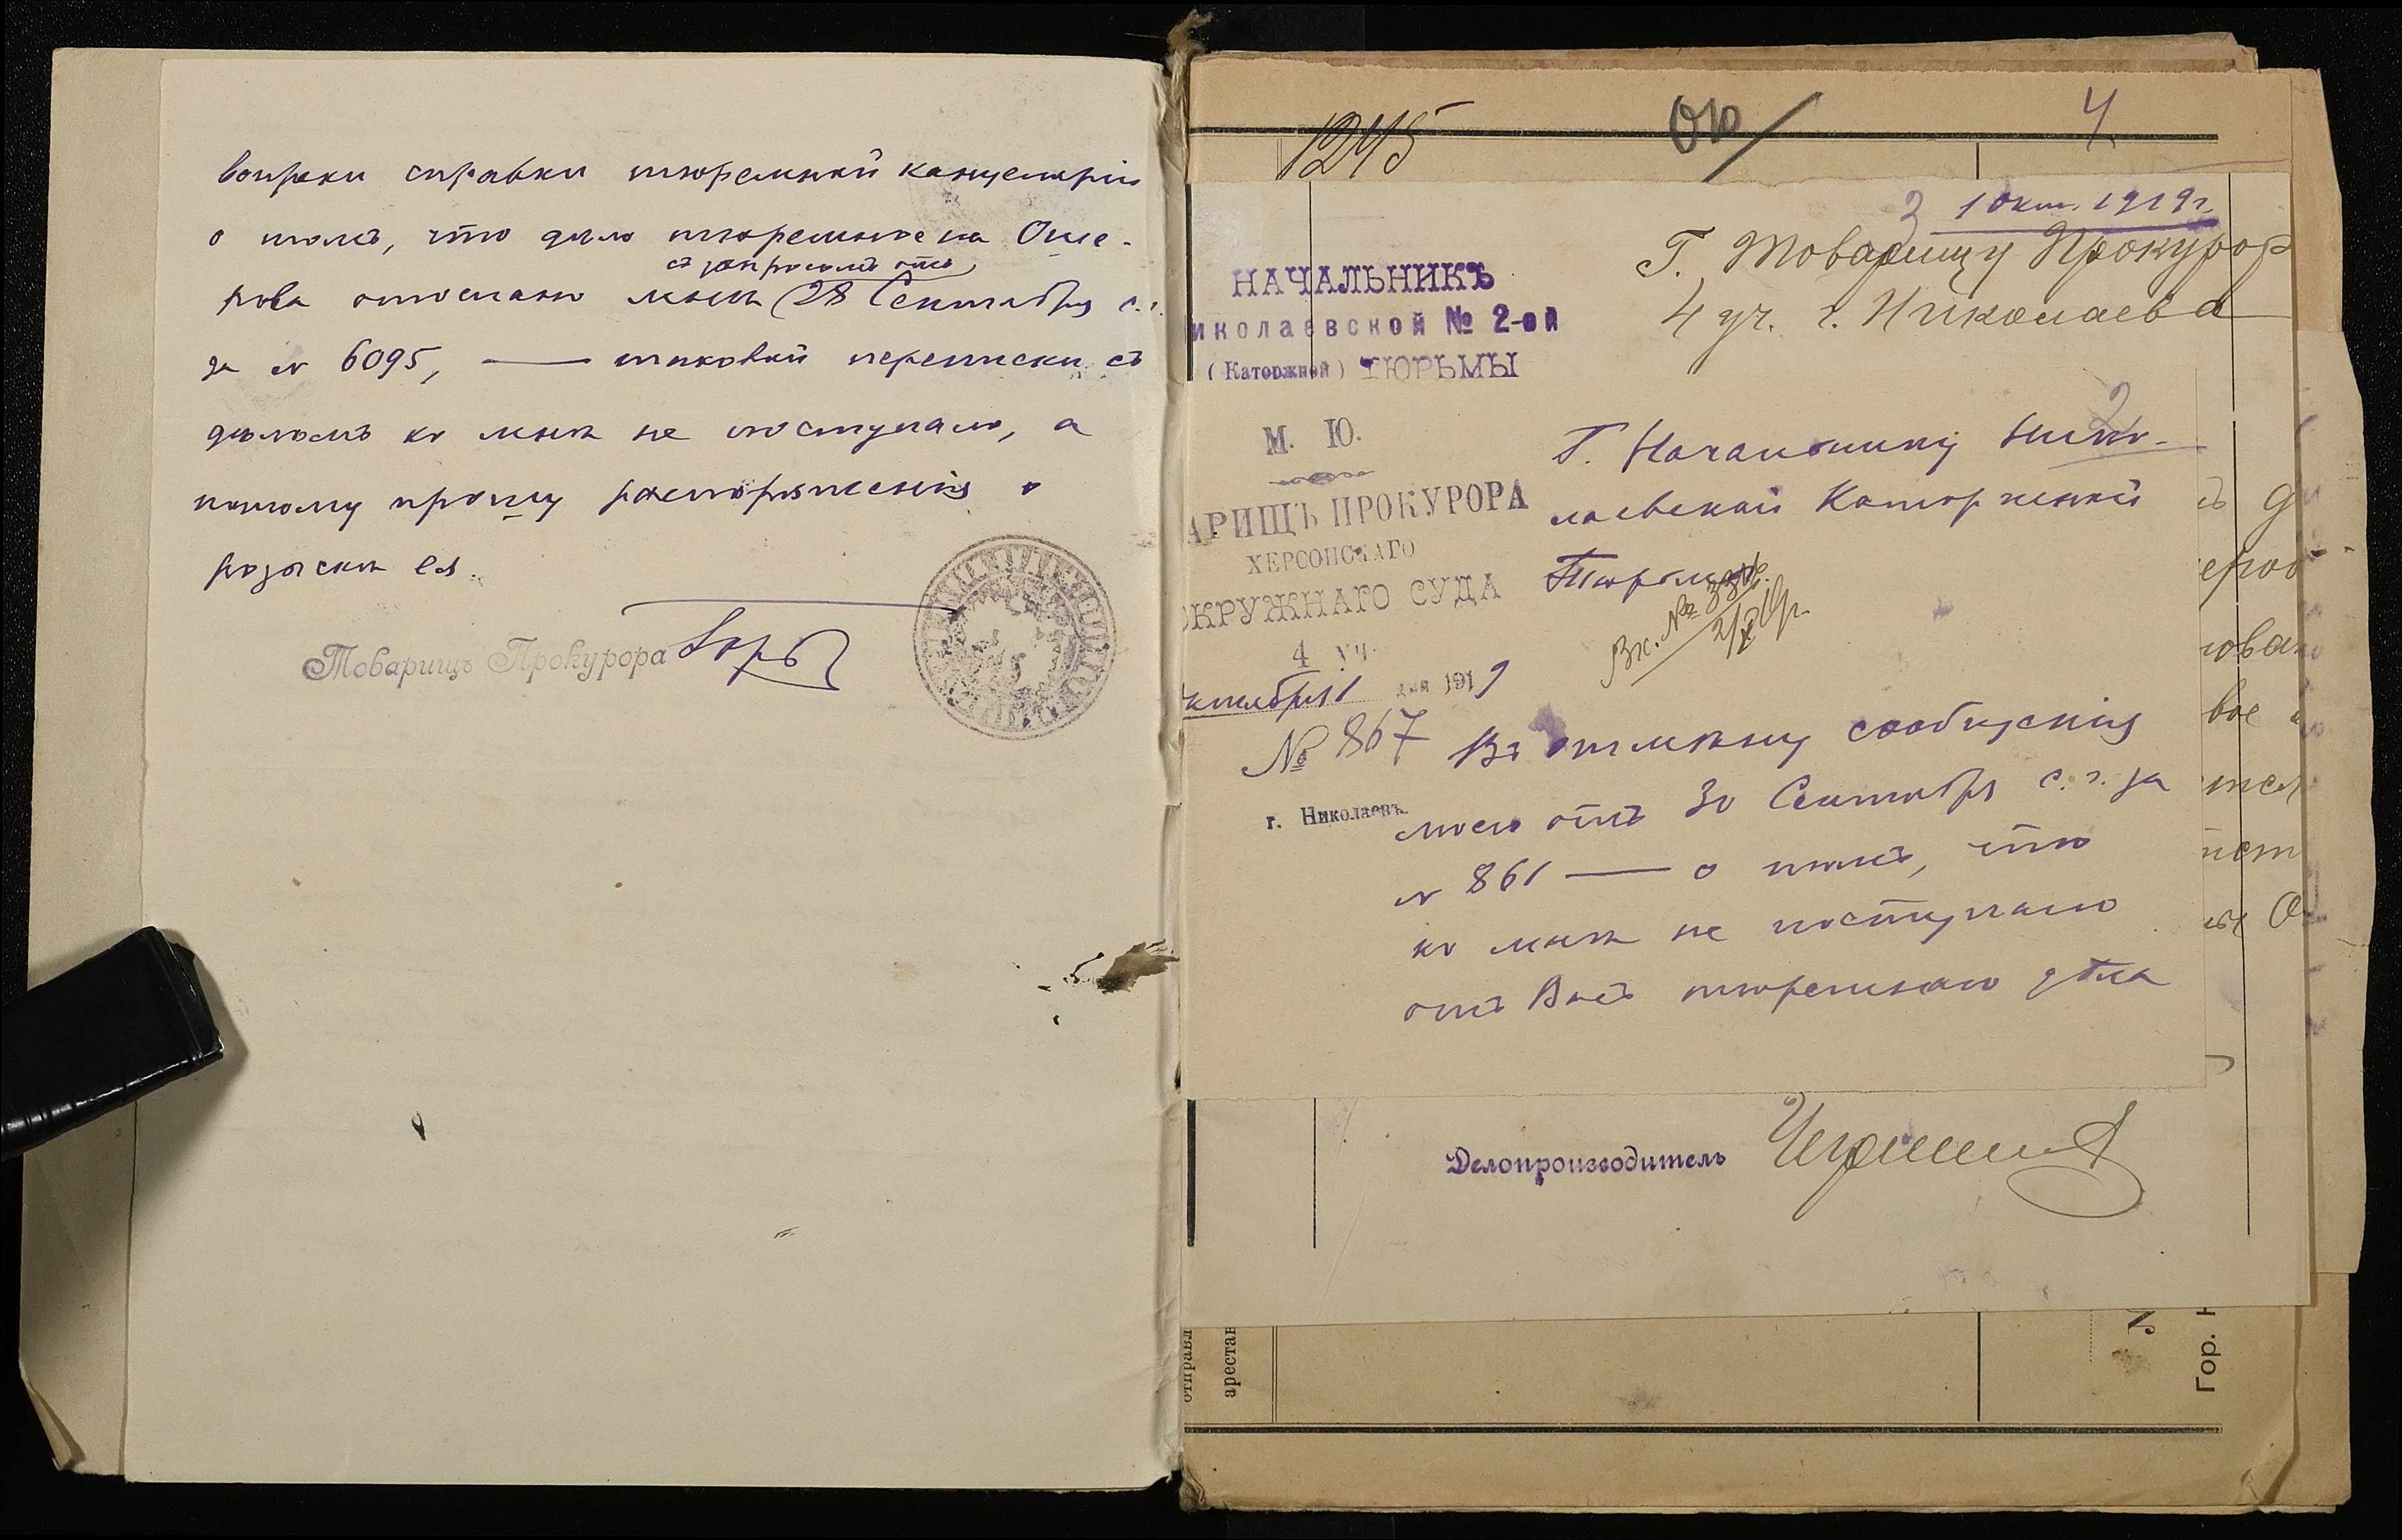 вопреки справки тюремной канцеляріи
о томъ, что дело тюремное на Оше-
съ запросомъ отъ
рова отослано мнѣ 28 Сентября с.г.
за № 6095, — таковой переписки съ
дѣломъ ко мнѣ не поступало, а
потому прошу распоряженія о
розыскѣ ея.
Товарищъ Прокурора
1245
4
3
1 Окт. 1919 г.
Г. Товарищу Прокурор
4 уч. г. Николаева
НАЧАЛЬНИКЪ
иколаевской № 2-ой
(Каторжной) ТЮРЬМЫ
2
Г. Начальнику Нико-
лаевской Каторжной
Тюрьмы
М. Ю.
АРИЩЪ ПРОКУРОРА
ХЕРСОНСКАГО
ОКРУЖНАГО СУДА
4 уч.
ктября 1 дня 1919
№ 867
г. Николаевъ
Вх. №
Въ отмѣну сообщенія
моего отъ 30 Сентября с. г. за
№ 861 — о томъ, что
ко мнѣ не поступало
отъ Васъ тюремнаго дѣла
Делопроизводитель
отправл
арестан
Гор. Н